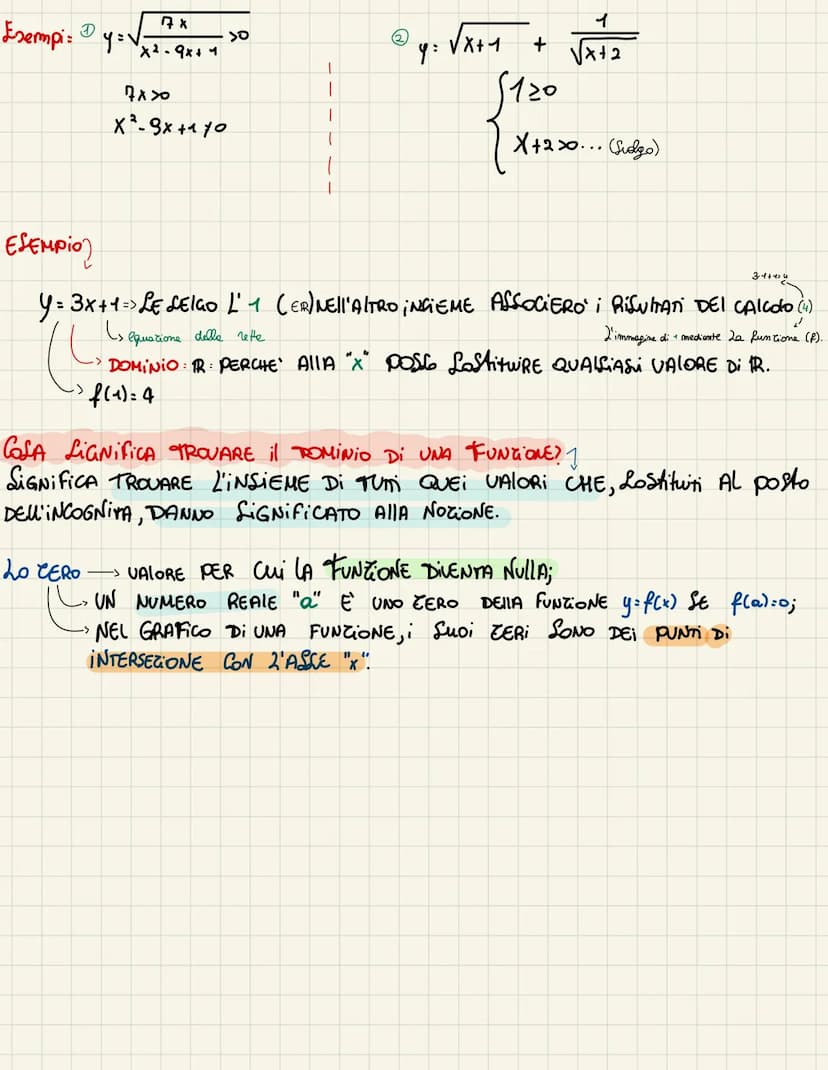 Esempi: ① y=√(7x / x²-9x+1) >0
7x>0
x²-9x+1>0
② y: √x+1 + 1/√x+2
{1≥0
x+2>0... (svolgo)
ESEMPIO
3·1+1=4
y=3x+1=> SE SELGO L' 1 (∈R) NELL'ALTRO INSIEME ASSOCIERO' i RISULTATI DEL CALCOLO (4)
↳ Equazione della retta
L'immagine di 1 mediante la funzione (f).
→ DOMINIO: R: PERCHE' ALLA "x" POSSO SOSTITUIRE QUALSIASI VALORE Di R.
→ f(1)=4
COSA SIGNIFICA TROVARE il DOMINIO Di UNA FUNZIONE?
SIGNIFICA TROVARE L'INSIEME Di TUTTI QUEI VALORI CHE, SOSTITUITI AL POSTO
DELL'INCOGNITA, DANNO SIGNIFICATO ALLA NOZIONE.
LO ZERO → VALORE PER CUI LA FUNZIONE DIVENTA NULLA;
→ UN NUMERO REALE "a" E' UNO ZERO DELLA FUNZIONE y=f(x) SE f(a)=0;
→ NEL GRAFICO Di UNA FUNZIONE, i SUOI ZERI SONO DEI PUNTI Di
INTERSEZIONE CON L'ASSE "x".